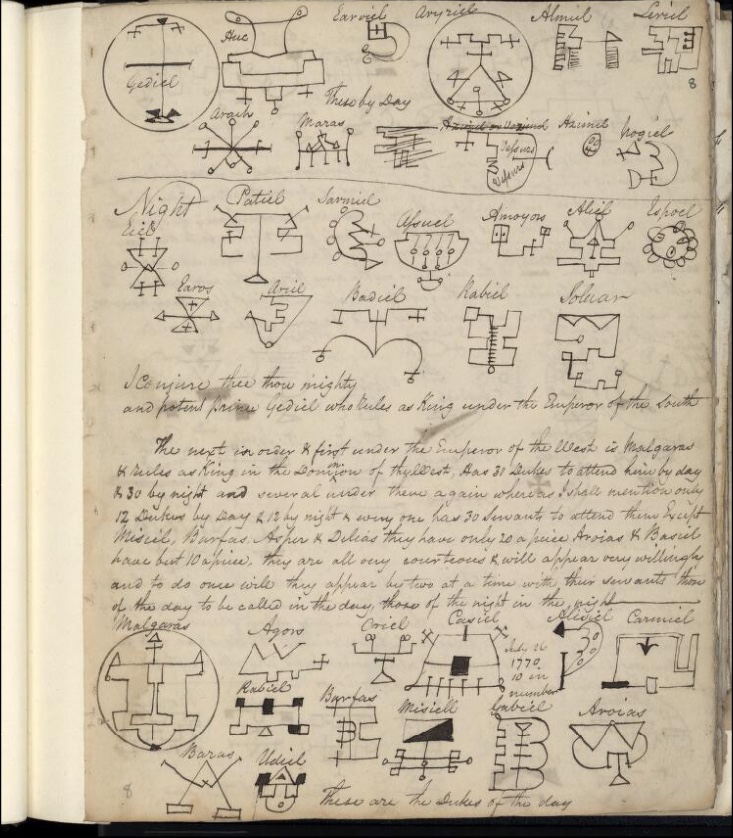 Earviel Aryziel Almiel Leriel
Gediel
8
These by Day
Maras Azimel Nogiel
Vessurs
Night Patiel Sarmiel
Eiel Assuel Amoyors Aliel Espoel
Earos Ariel Badiel Rabiel Soluar
I Conjure thee thou mighty
and potent prince Gediel who Rules as King under the Emperor of the South
The next in order & first under the Emperor of the West is Malgaras
& rules as King in the Dominion of the West, Has 30 Dukes to attend him by day
& 30 by night and several under them again whereas I shall mention only
12 Dukes by Day & 12 by night & every one has 30 Servants to attend them Except
Misiel, Barfas, Asper & Delias they have only 20 a piece Aroias & Basiel
have but 10 a piece, they are all very courteous & will appear very willingly
and to do ones will they appear by two at a time with their servants those
of the day to be called in the day, those of the night in the night
Malgaras Agors Oriel Casiel Aliesiel Carmiel
July 26
1770
10 in
number
Rabiel Barfas Misiell Gabiel Aroias
Baras Udiel
8 These are the Dukes of the day